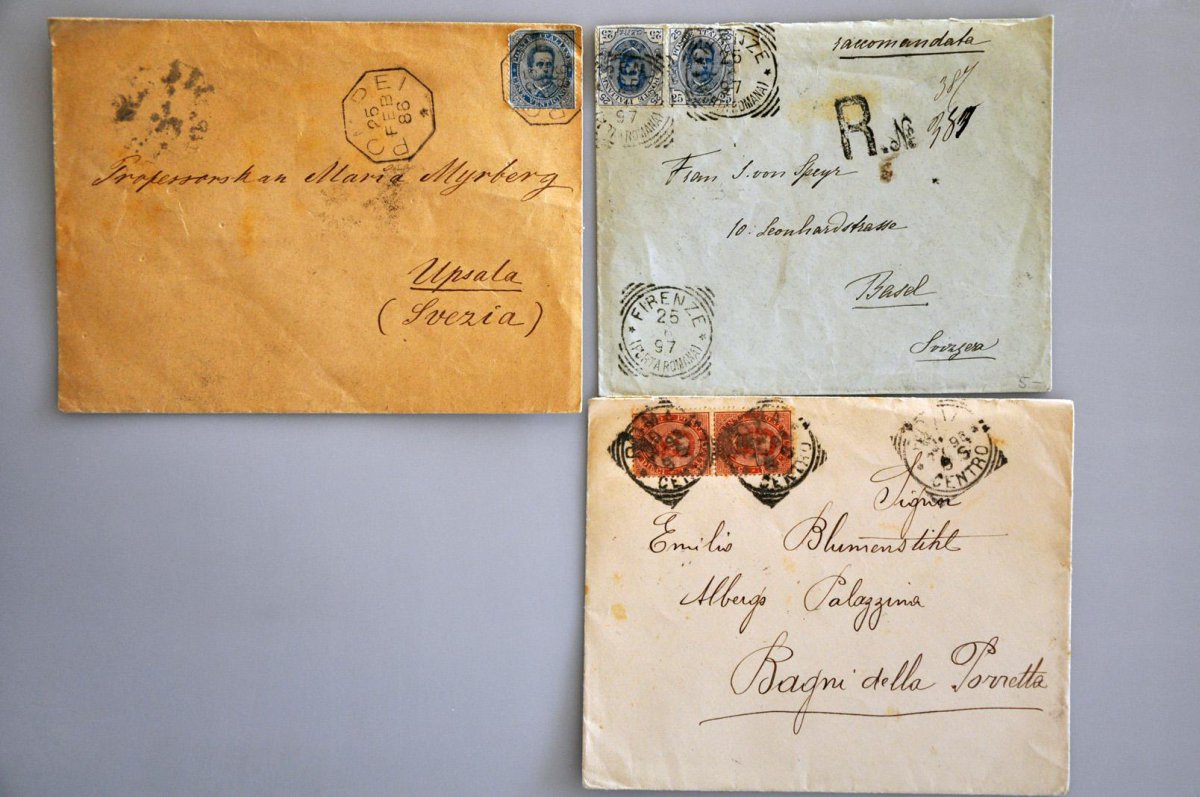 25
FEB
86
Professorskan Maria Myrberg
Upsala
(Svezia)
25 25
25 25
97
raccomandata
387
R. No 387
Frau S. von Speyr
10. Leonhardstrasse
Basel
Svizzera
FIRENZE
25
97
(PORTA ROMANA)
5
CENTRO
Signor
Emilio Blumenstihl
Albergo Palazzina
Bagni della Porretta